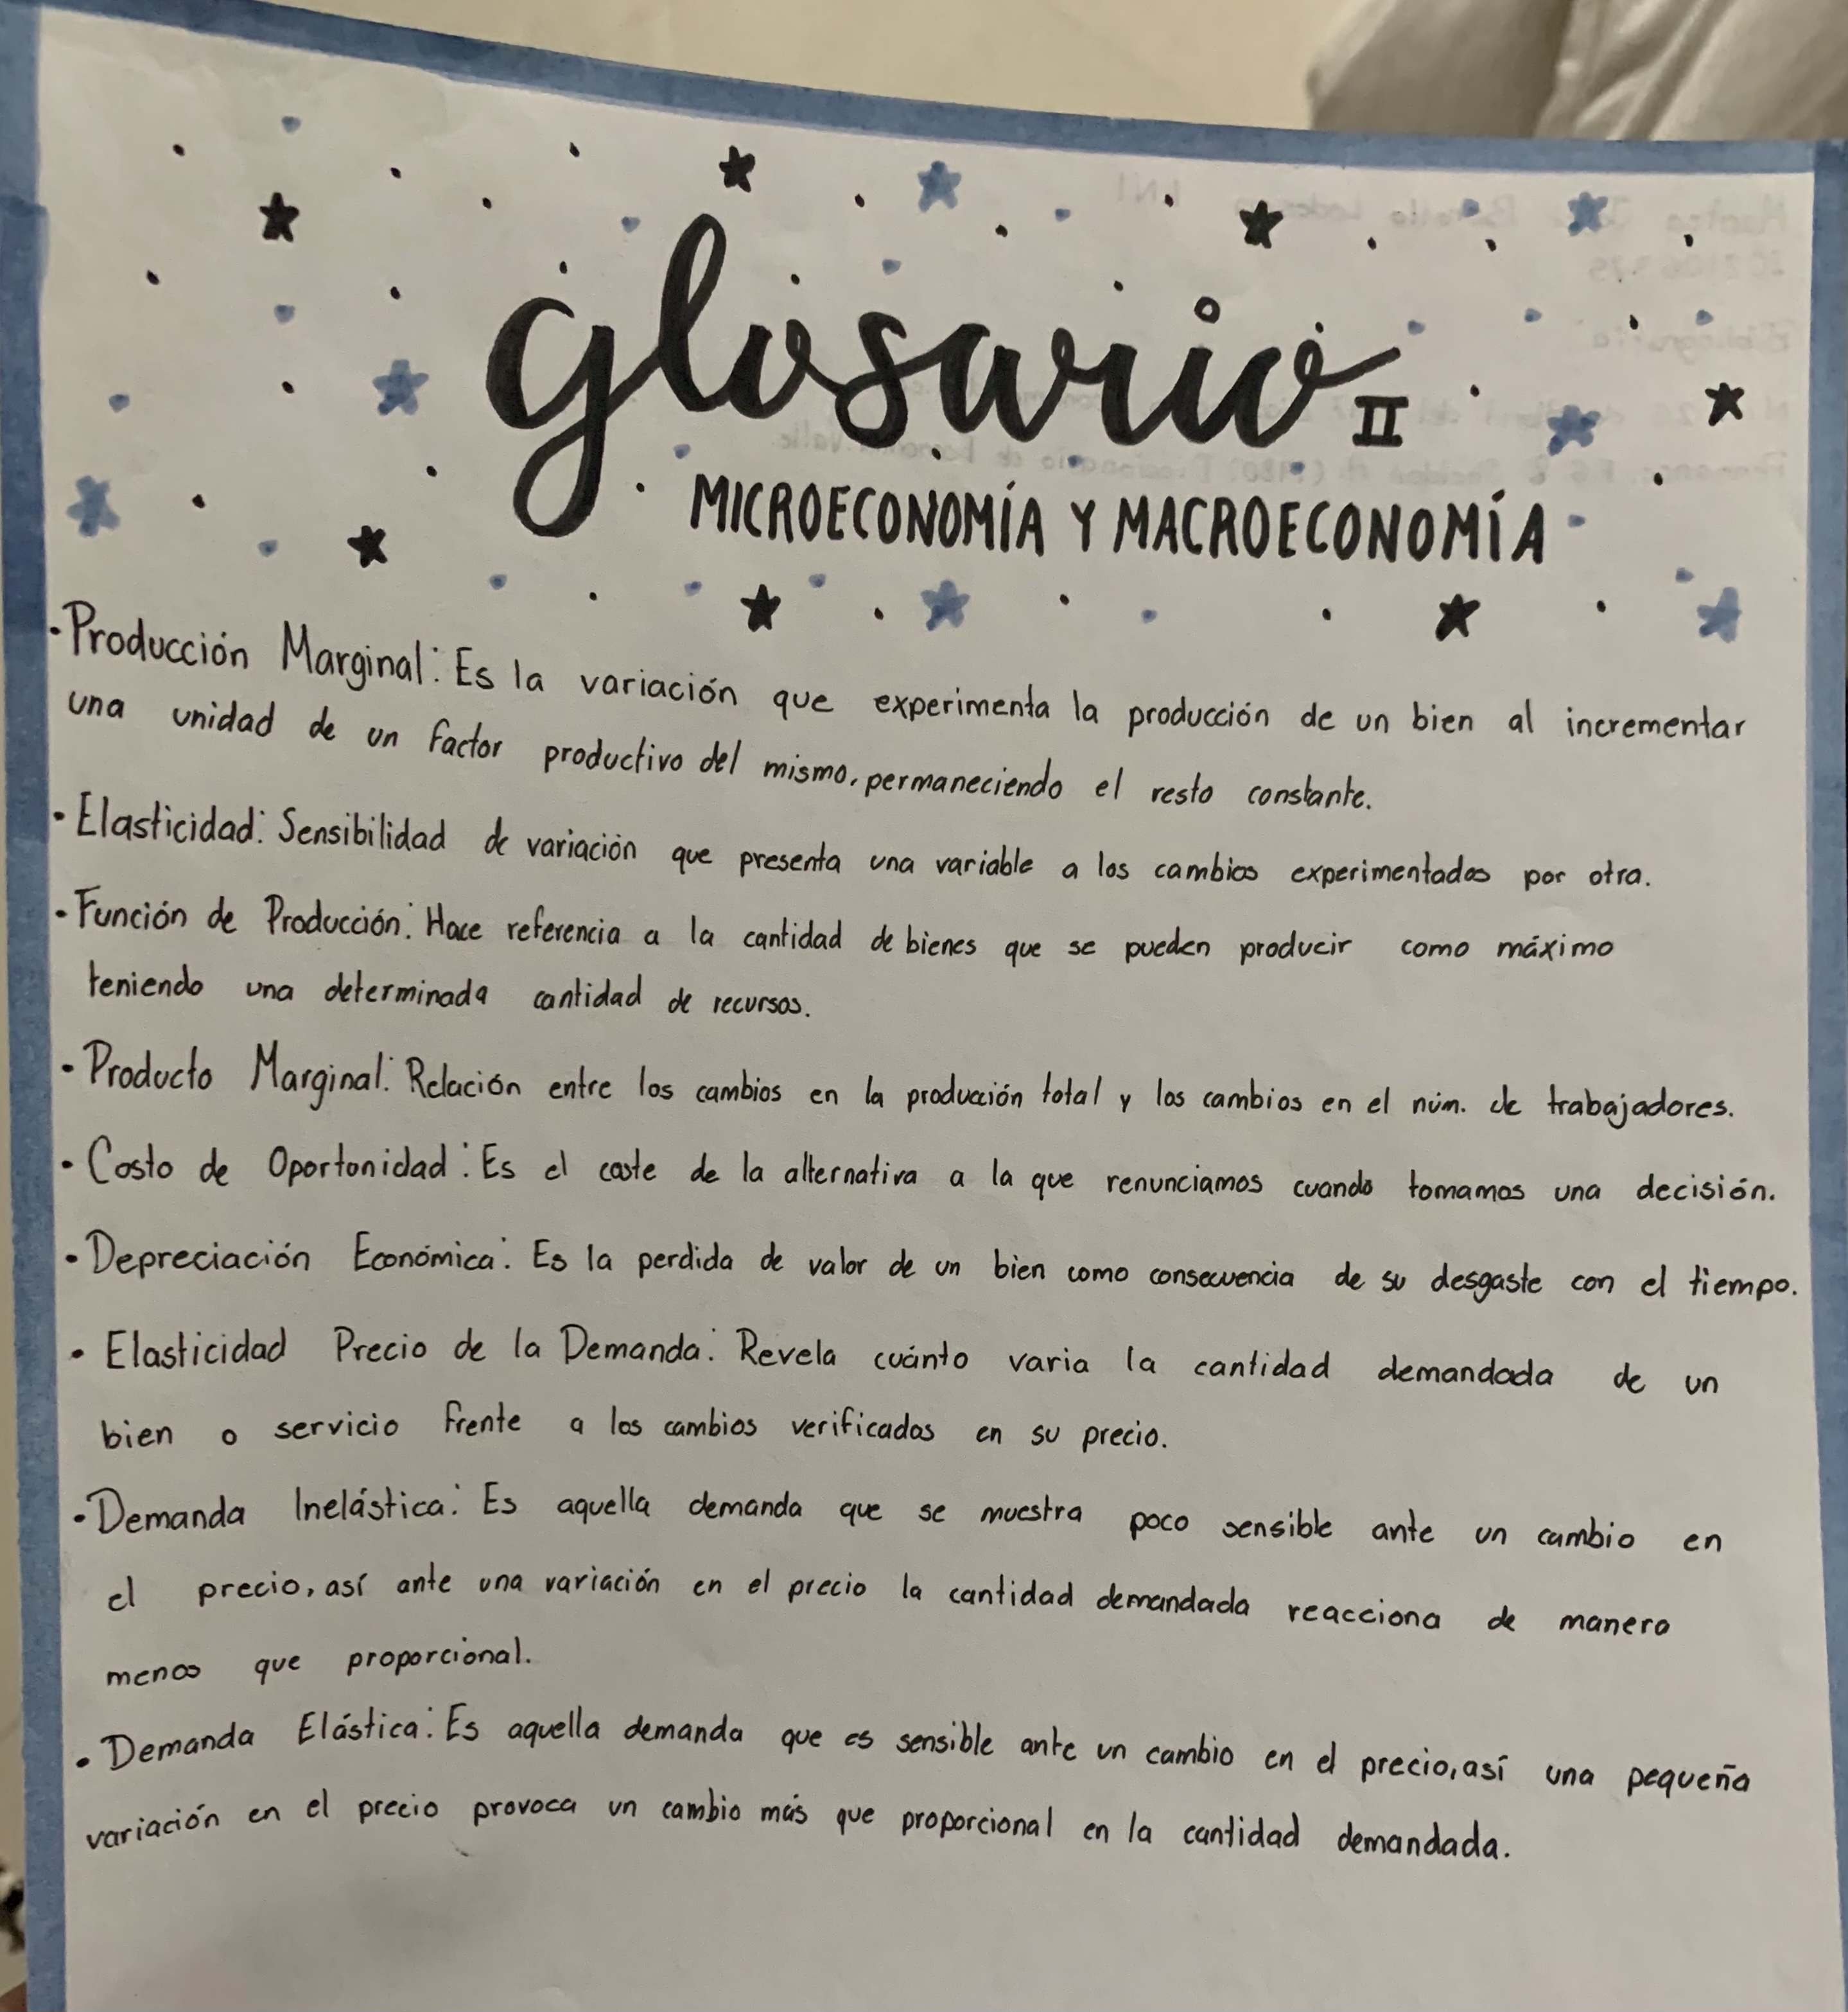 glosario II
MICROECONOMÍA Y MACROECONOMÍA
• Producción Marginal: Es la variación que experimenta la producción de un bien al incrementar
una unidad de un factor productivo del mismo, permaneciendo el resto constante.
• Elasticidad: Sensibilidad de variación que presenta una variable a los cambios experimentados por otra.
• Función de Producción: Hace referencia a la cantidad de bienes que se pueden producir como máximo
teniendo una determinada cantidad de recursos.
• Producto Marginal: Relación entre los cambios en la producción total y los cambios en el núm. de trabajadores.
• Costo de Oportunidad: Es el coste de la alternativa a la que renunciamos cuando tomamos una decisión.
• Depreciación Económica: Es la perdida de valor de un bien como consecuencia de su desgaste con el tiempo.
• Elasticidad Precio de la Demanda: Revela cuánto varia la cantidad demandada de un
bien o servicio frente a los cambios verificados en su precio.
• Demanda Inelástica: Es aquella demanda que se muestra poco sensible ante un cambio en
el precio, así ante una variación en el precio la cantidad demandada reacciona de manera
menos que proporcional.
• Demanda Elástica: Es aquella demanda que es sensible ante un cambio en el precio, así una pequeña
variación en el precio provoca un cambio más que proporcional en la cantidad demandada.